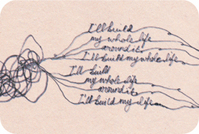 I'll build
my whole life
around it
I'll build
my whole life
I'll build
my whole life
around it
I'll build my life